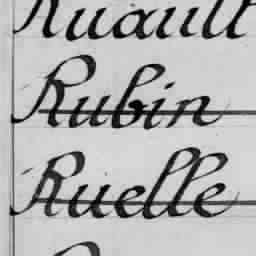 Ruault
Rubin
Ruelle